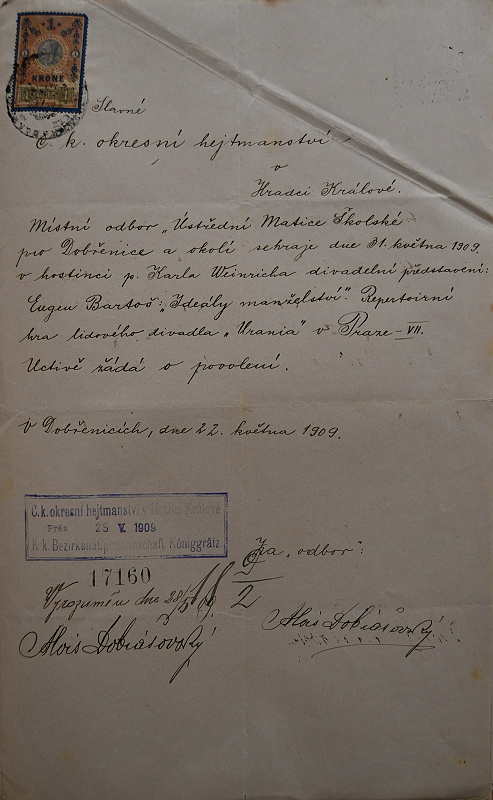 1
KRONE
Slavné
C. k. okresní hejtmanství
v
Hradci Králové.
Místní odbor „Ústřední Matice Školské
pro Dobřenice a okolí sehraje dne 31. května 1909
v hostinci p. Karla Weinricha divadelní představení:
Eugen Bartoš: „Ideály manželství". Repertoirní
hra lidového divadla „Urania" v Praze-VII.
Uctivě žádá o povolení.
V Dobřenicích, dne 22. května 1909.
C.k. okresní hejtmanství v Hradci Králové
Präs 25 V. 1909
K.k. Bezirkshauptmannschaft Königgrätz
17160
Za „odbor":
2
Vyrozuměn dne 28/5
Alois Dobiášovský
Alois Dobiášovský